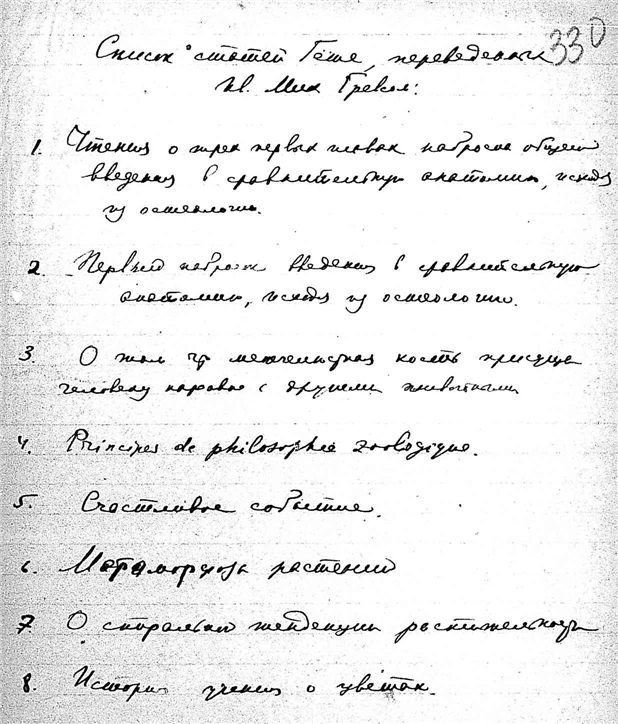 330
Список статей Гёте, переведенных
Ив. Мих. Гревсом:
1. Чтения о трех первых главах наброска общего
введения в сравнительную анатомию, исходя
из остеологии.
2. Первый набросок введения в сравнительную
анатомию, исходя из остеологии.
3. О том что межчелюстная кость присуща
человеку наравне с другими животными
4. Principes de philosophie zoologique.
5. Счастливое событие.
6. Метаморфоза растений
7. О спиральной тенденции растительности
8. История учения о цветах.